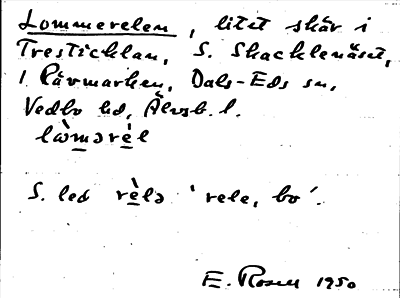 Lommerelen, litet skär i
Tresticklan, S. Skacklenäset,
i Rävmarken, Dals-Eds sn,
Vedbo hd, Älvsb. l.
lòmərèl
S. led rèlə 'rele, bo'.
E. Rosell 1950